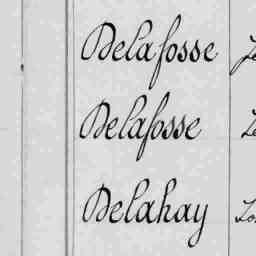 Delafosse
Delafosse
Delahay